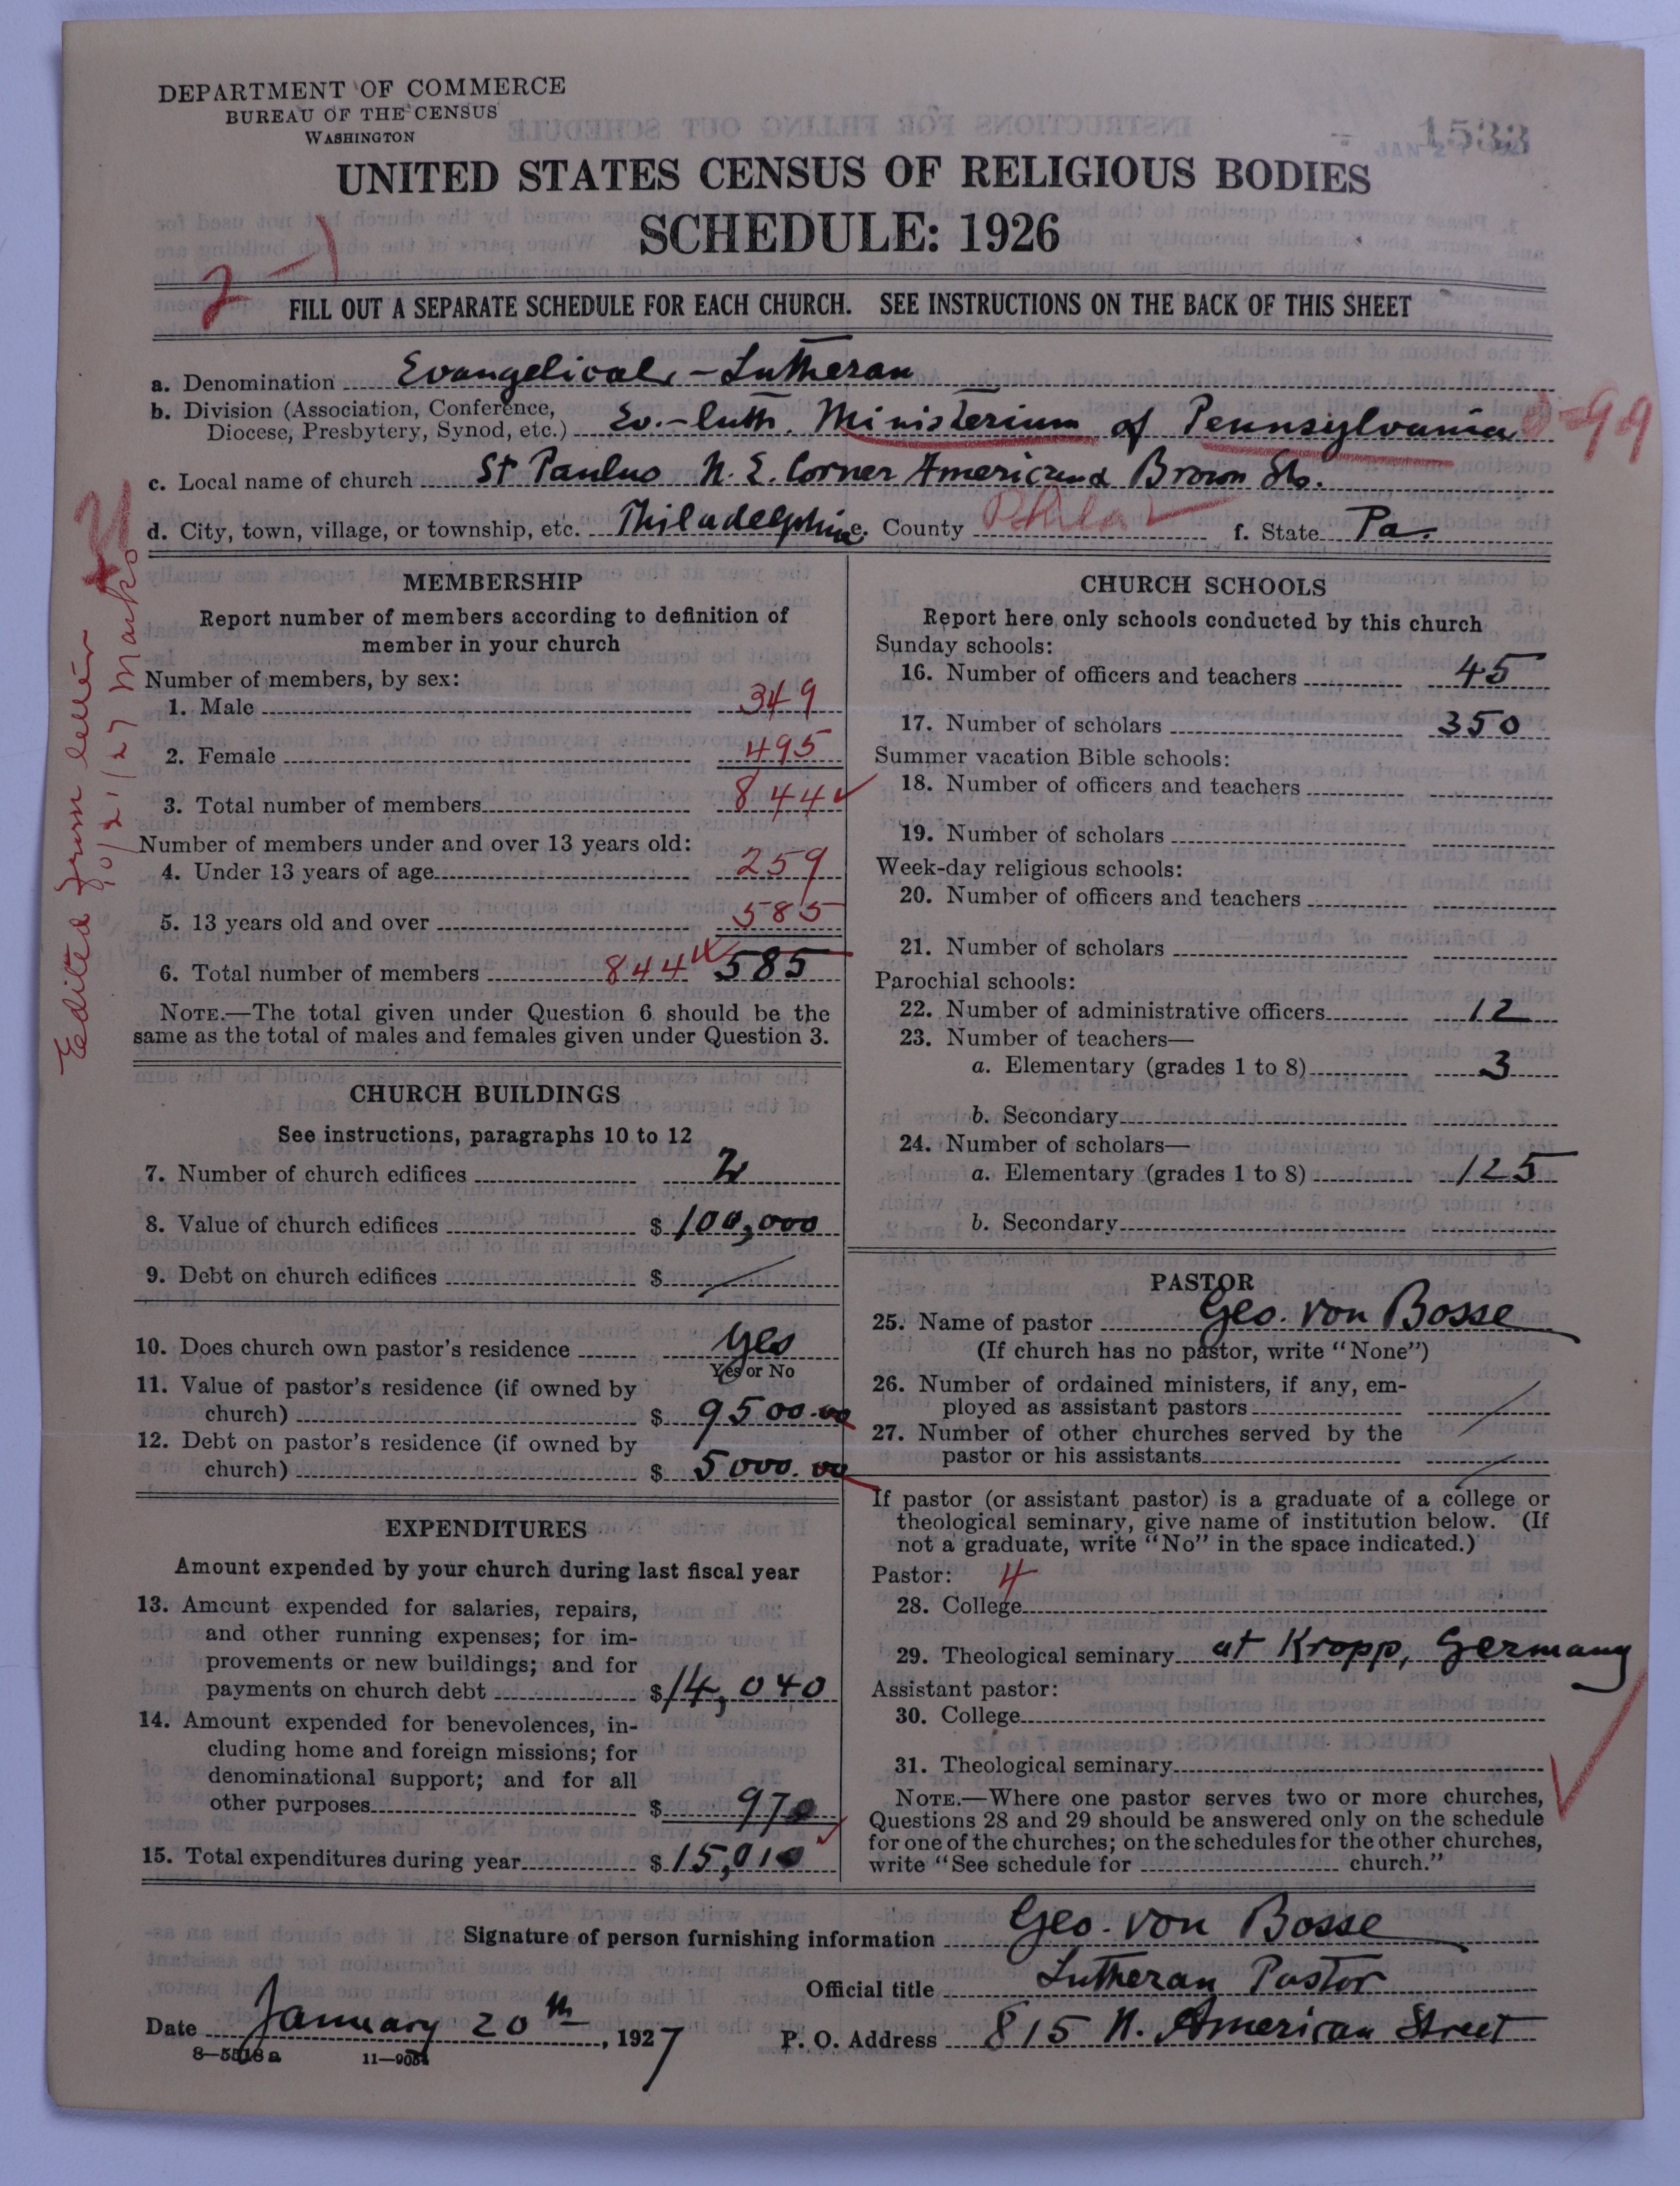 DEPARTMENT OF COMMERCE
BUREAU OF THE CENSUS
WASHINGTON
1533
UNITED STATES CENSUS OF RELIGIOUS BODIES
SCHEDULE: 1926
FILL OUT A SEPARATE SCHEDULE FOR EACH CHURCH. SEE INSTRUCTIONS ON THE BACK OF THIS SHEET
a. Denomination Evangelical-Lutheran
b. Division (Association, Conference,
Diocese, Presbytery, Synod, etc.) Ev.-Luth. Ministerium of Pennsylvania
c. Local name of church St Paulus N. E. Corner Americ and Brown Sts.
d. City, town, village, or township, etc. Philadelphia e. County Phila f. State Pa.
Edited from letter
10/21/27 Marks
MEMBERSHIP
Report number of members according to definition of
member in your church
Number of members, by sex:
1. Male 349
2. Female 495
3. Total number of members 844
Number of members under and over 13 years old:
4. Under 13 years of age 259
5. 13 years old and over 585
6. Total number of members 844 585
NOTE.—The total given under Question 6 should be the
same as the total of males and females given under Question 3.
CHURCH BUILDINGS
See instructions, paragraphs 10 to 12
7. Number of church edifices 2
8. Value of church edifices $ 100,000
9. Debt on church edifices $
10. Does church own pastor's residence yes
Yes or No
11. Value of pastor's residence (if owned by
church) $ 9500.00
12. Debt on pastor's residence (if owned by
church) $ 5000.00
EXPENDITURES
Amount expended by your church during last fiscal year
13. Amount expended for salaries, repairs,
and other running expenses; for im-
provements or new buildings; and for
payments on church debt $ 14,040
14. Amount expended for benevolences, in-
cluding home and foreign missions; for
denominational support; and for all
other purposes $ 970
15. Total expenditures during year $ 15,010
CHURCH SCHOOLS
Report here only schools conducted by this church
Sunday schools:
16. Number of officers and teachers 45
17. Number of scholars 350
Summer vacation Bible schools:
18. Number of officers and teachers
19. Number of scholars
Week-day religious schools:
20. Number of officers and teachers
21. Number of scholars
Parochial schools:
22. Number of administrative officers 12
23. Number of teachers—
a. Elementary (grades 1 to 8) 3
b. Secondary
24. Number of scholars—
a. Elementary (grades 1 to 8) 125
b. Secondary
PASTOR
25. Name of pastor Geo. von Bosse
(If church has no pastor, write "None")
26. Number of ordained ministers, if any, em-
ployed as assistant pastors
27. Number of other churches served by the
pastor or his assistants
If pastor (or assistant pastor) is a graduate of a college or
theological seminary, give name of institution below. (If
not a graduate, write "No" in the space indicated.)
Pastor: 4
28. College
29. Theological seminary at Kropp, Germany
Assistant pastor:
30. College
31. Theological seminary
NOTE.—Where one pastor serves two or more churches,
Questions 28 and 29 should be answered only on the schedule
for one of the churches; on the schedules for the other churches,
write "See schedule for church."
Signature of person furnishing information Geo. von Bosse
Official title Lutheran Pastor
Date January 20th, 1927 P. O. Address 815 N. American Street
8—5518a 11—9054